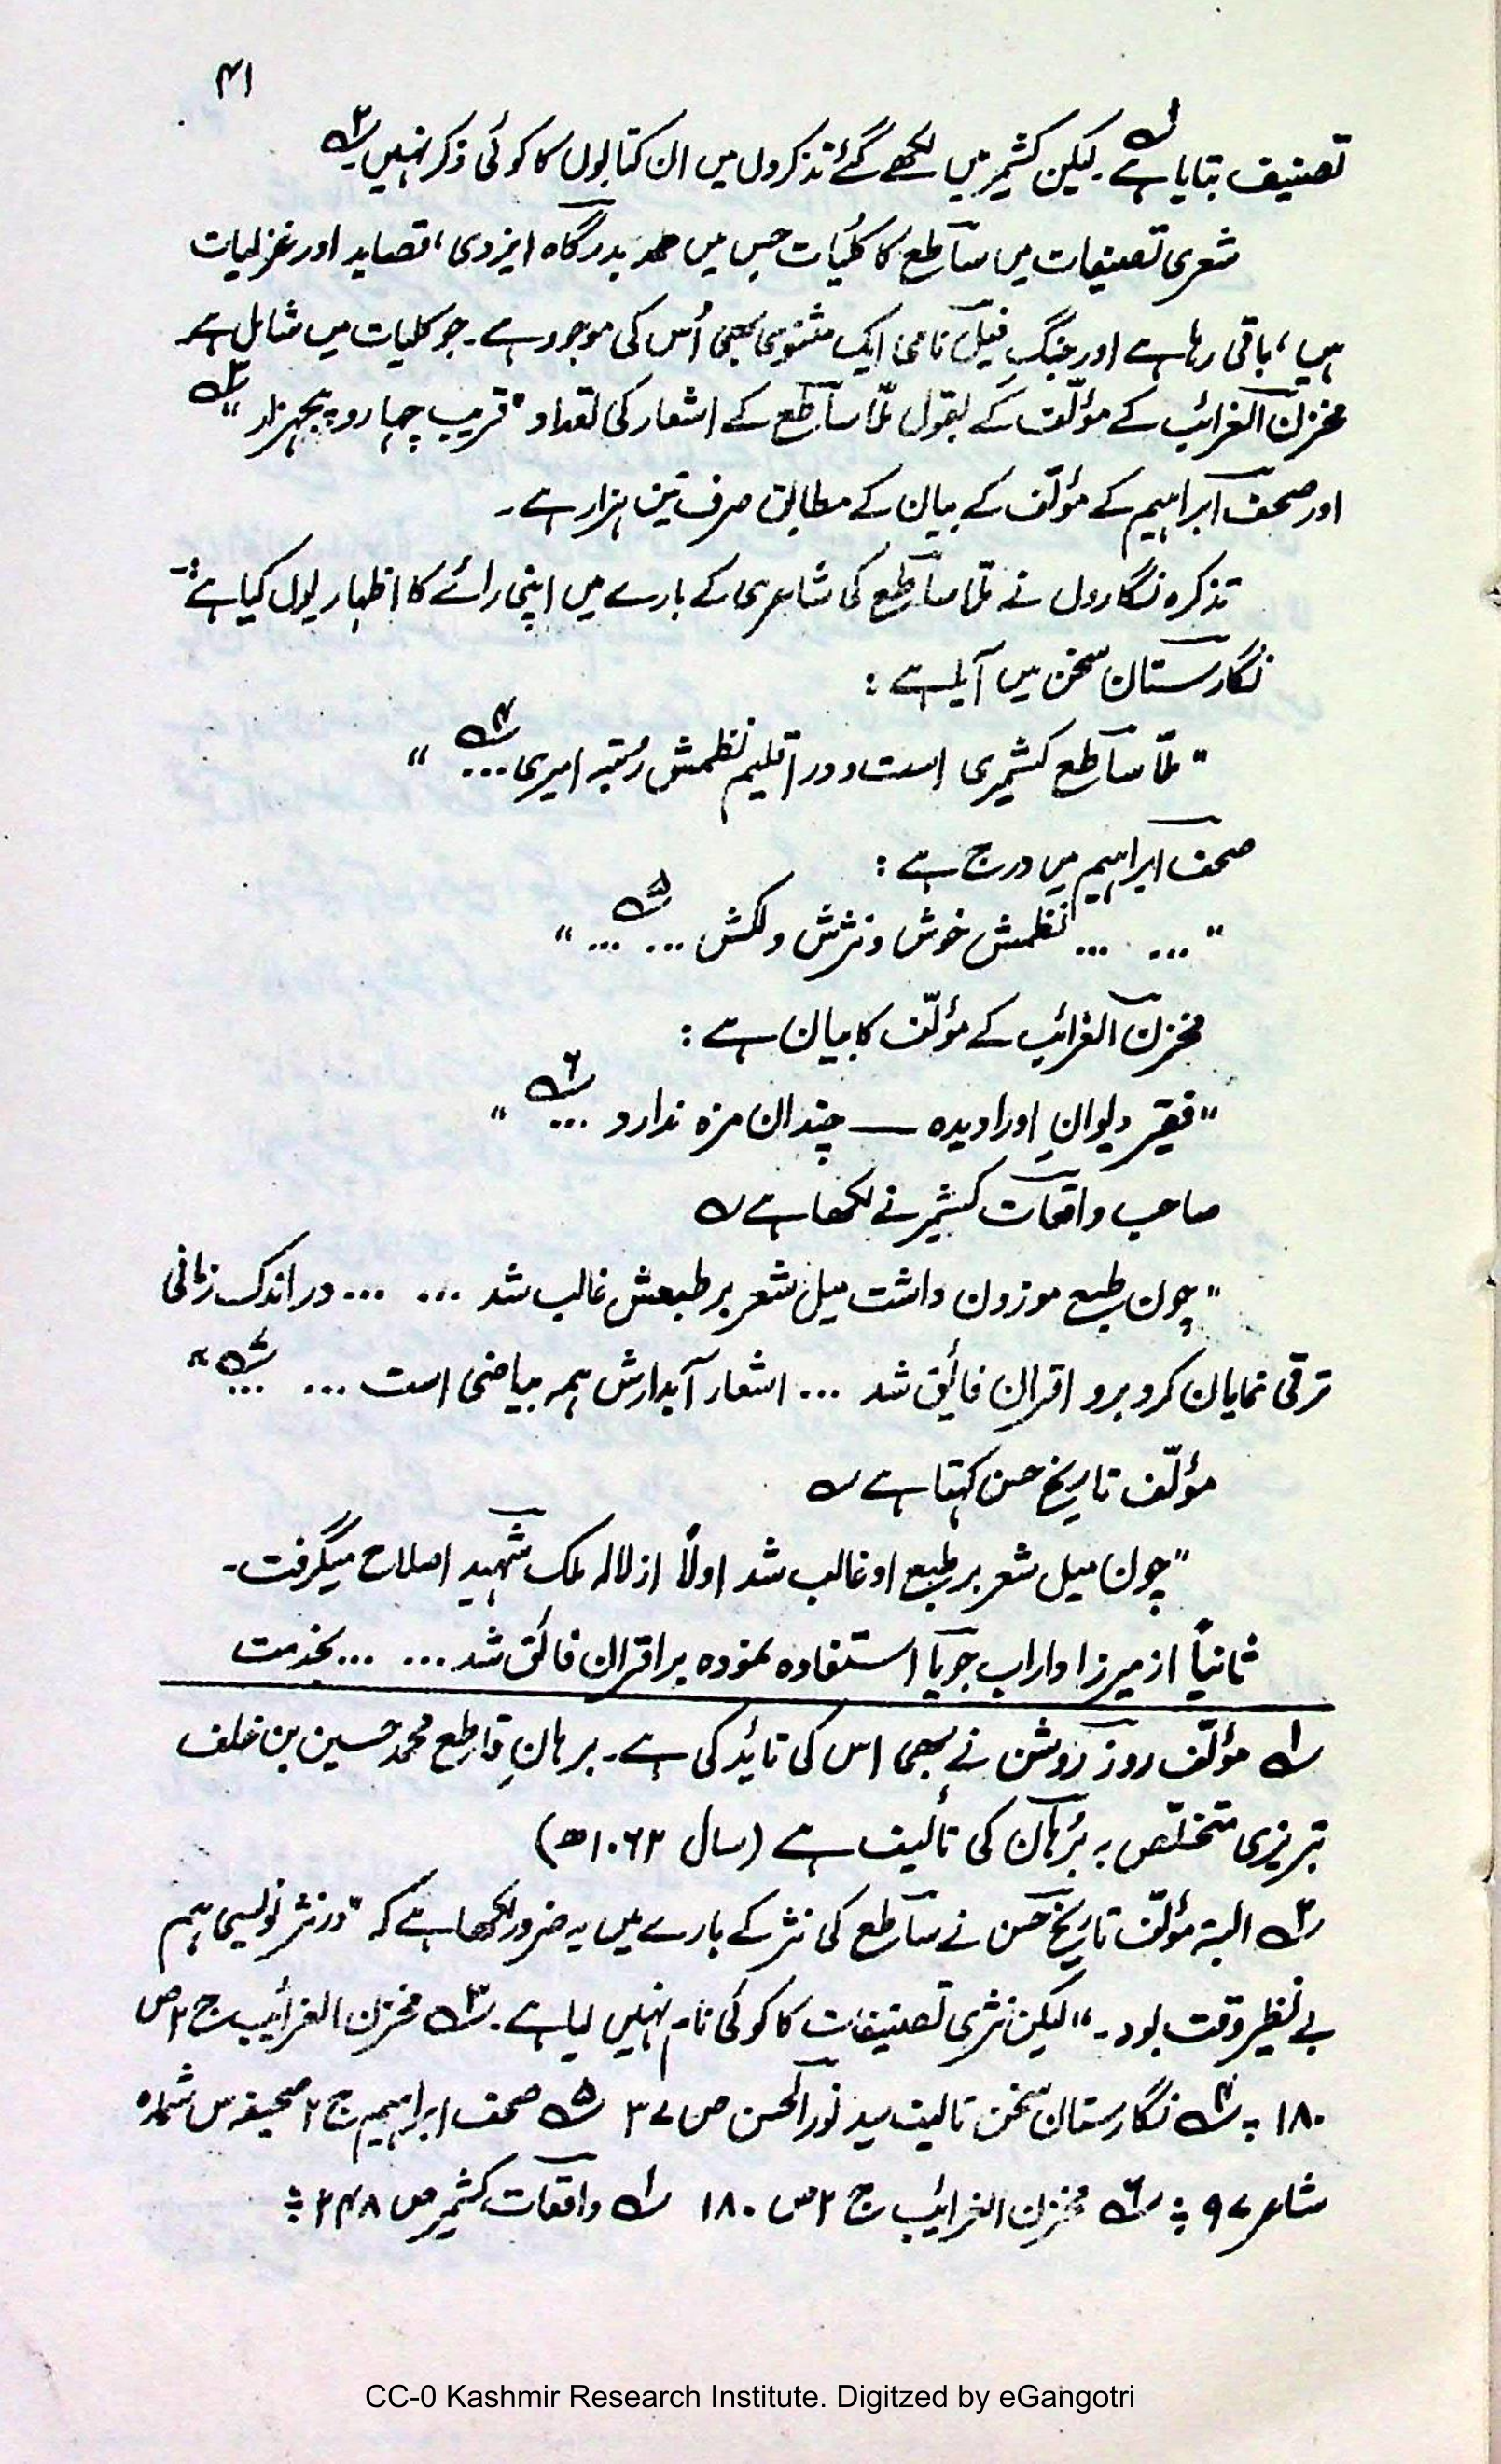 ۴۱
تصنیف بتایا ہے۱؎۔ لیکن کشمیر میں لکھے گئے تذکروں میں ان کتابوں کا کوئی ذکر نہیں۲؎۔
شعری تصنیفات میں ساطع کا کلیات جس میں حمد بدرگاہ ایزدی، قصاید اور غزلیات
ہیں، باقی رہا ہے اور جنگِ فیل نامی ایک مثنوی بھی اُس کی موجود ہے۔ جو کلیات میں شامل ہے
مخزن الغرائب کے مؤلّف کے بقول ملّا ساطع کے اشعار کی تعداد "قریب چہار و پنجہزار"۳؎
اور صحف ابراہیم کے مؤلّف کے بیان کے مطابق صرف تین ہزار ہے۔
تذکرہ نگاروں نے ملّا ساطع کی شاعری کے بارے میں اپنی رائے کا اظہار یوں کیا ہے:۔
نگارستان سخن میں آیا ہے :
"ملّا ساطع کشمیری است و در اقلیم نظمش رُتبہ امیری...۴؎"
صحف ابراہیم میں درج ہے :
"... ... نظمش خوش و نثرش دلکش ... ...۵؎"
مخزن الغرائب کے مؤلّف کا بیان ہے :
"فقیر دیوانِ اورا دیدہ — چندان مزہ ندارد ...۶؎"
صاحب واقعات کشمیر نے لکھا ہے ؎
"چون طبع موزون داشت میل شعر بر طبعش غالب شد ... ... در اندک زمانی
ترقی نمایان کرد و بر اقران فائق شد ... اشعار آبدارش ہمہ بیاضی است ... ...۷؎"
مؤلّف تاریخ حسن کہتا ہے ؎
"چون میل شعر بر طبع او غالب شد اولاً از لالہ ملک شہید اصلاح میگرفت۔
ثانیاً از میرزا داراب جویا استفادہ نمودہ بر اقران فائق شد ... ... بخدمت
۱؎ مؤلّف روز روشن نے بھی اس کی تائید کی ہے۔ برہانِ قاطع محمد حسین بن خلف
تبریزی متخلّص بہ بُرہان کی تألیف ہے (سال ۱۰۶۲ھ)
۲؎ البتہ مؤلّف تاریخ حسن نے ساطع کی نثر کے بارے میں یہ ضرور لکھا ہے کہ "در نثر نویسی ہم
بے نظیر وقت بود۔" لیکن نثری تصنیفات کا کوئی نام نہیں لیا ہے۔ ۳؎ مخزن الغرائب ج ۲ ص
۱۸۰ ۴؎ نگارستان سخن تالیف سید نورالحسن ص ۳۷ ۵؎ صحف ابراہیم ج ۲ صحیفہ س شمارہ
شاعر ۹۷ ۶؎ مخزن الغرائب ج ۲ ص ۱۸۰ ۱؎ واقعات کشمیر ص ۲۴۸
CC-0 Kashmir Research Institute. Digitzed by eGangotri